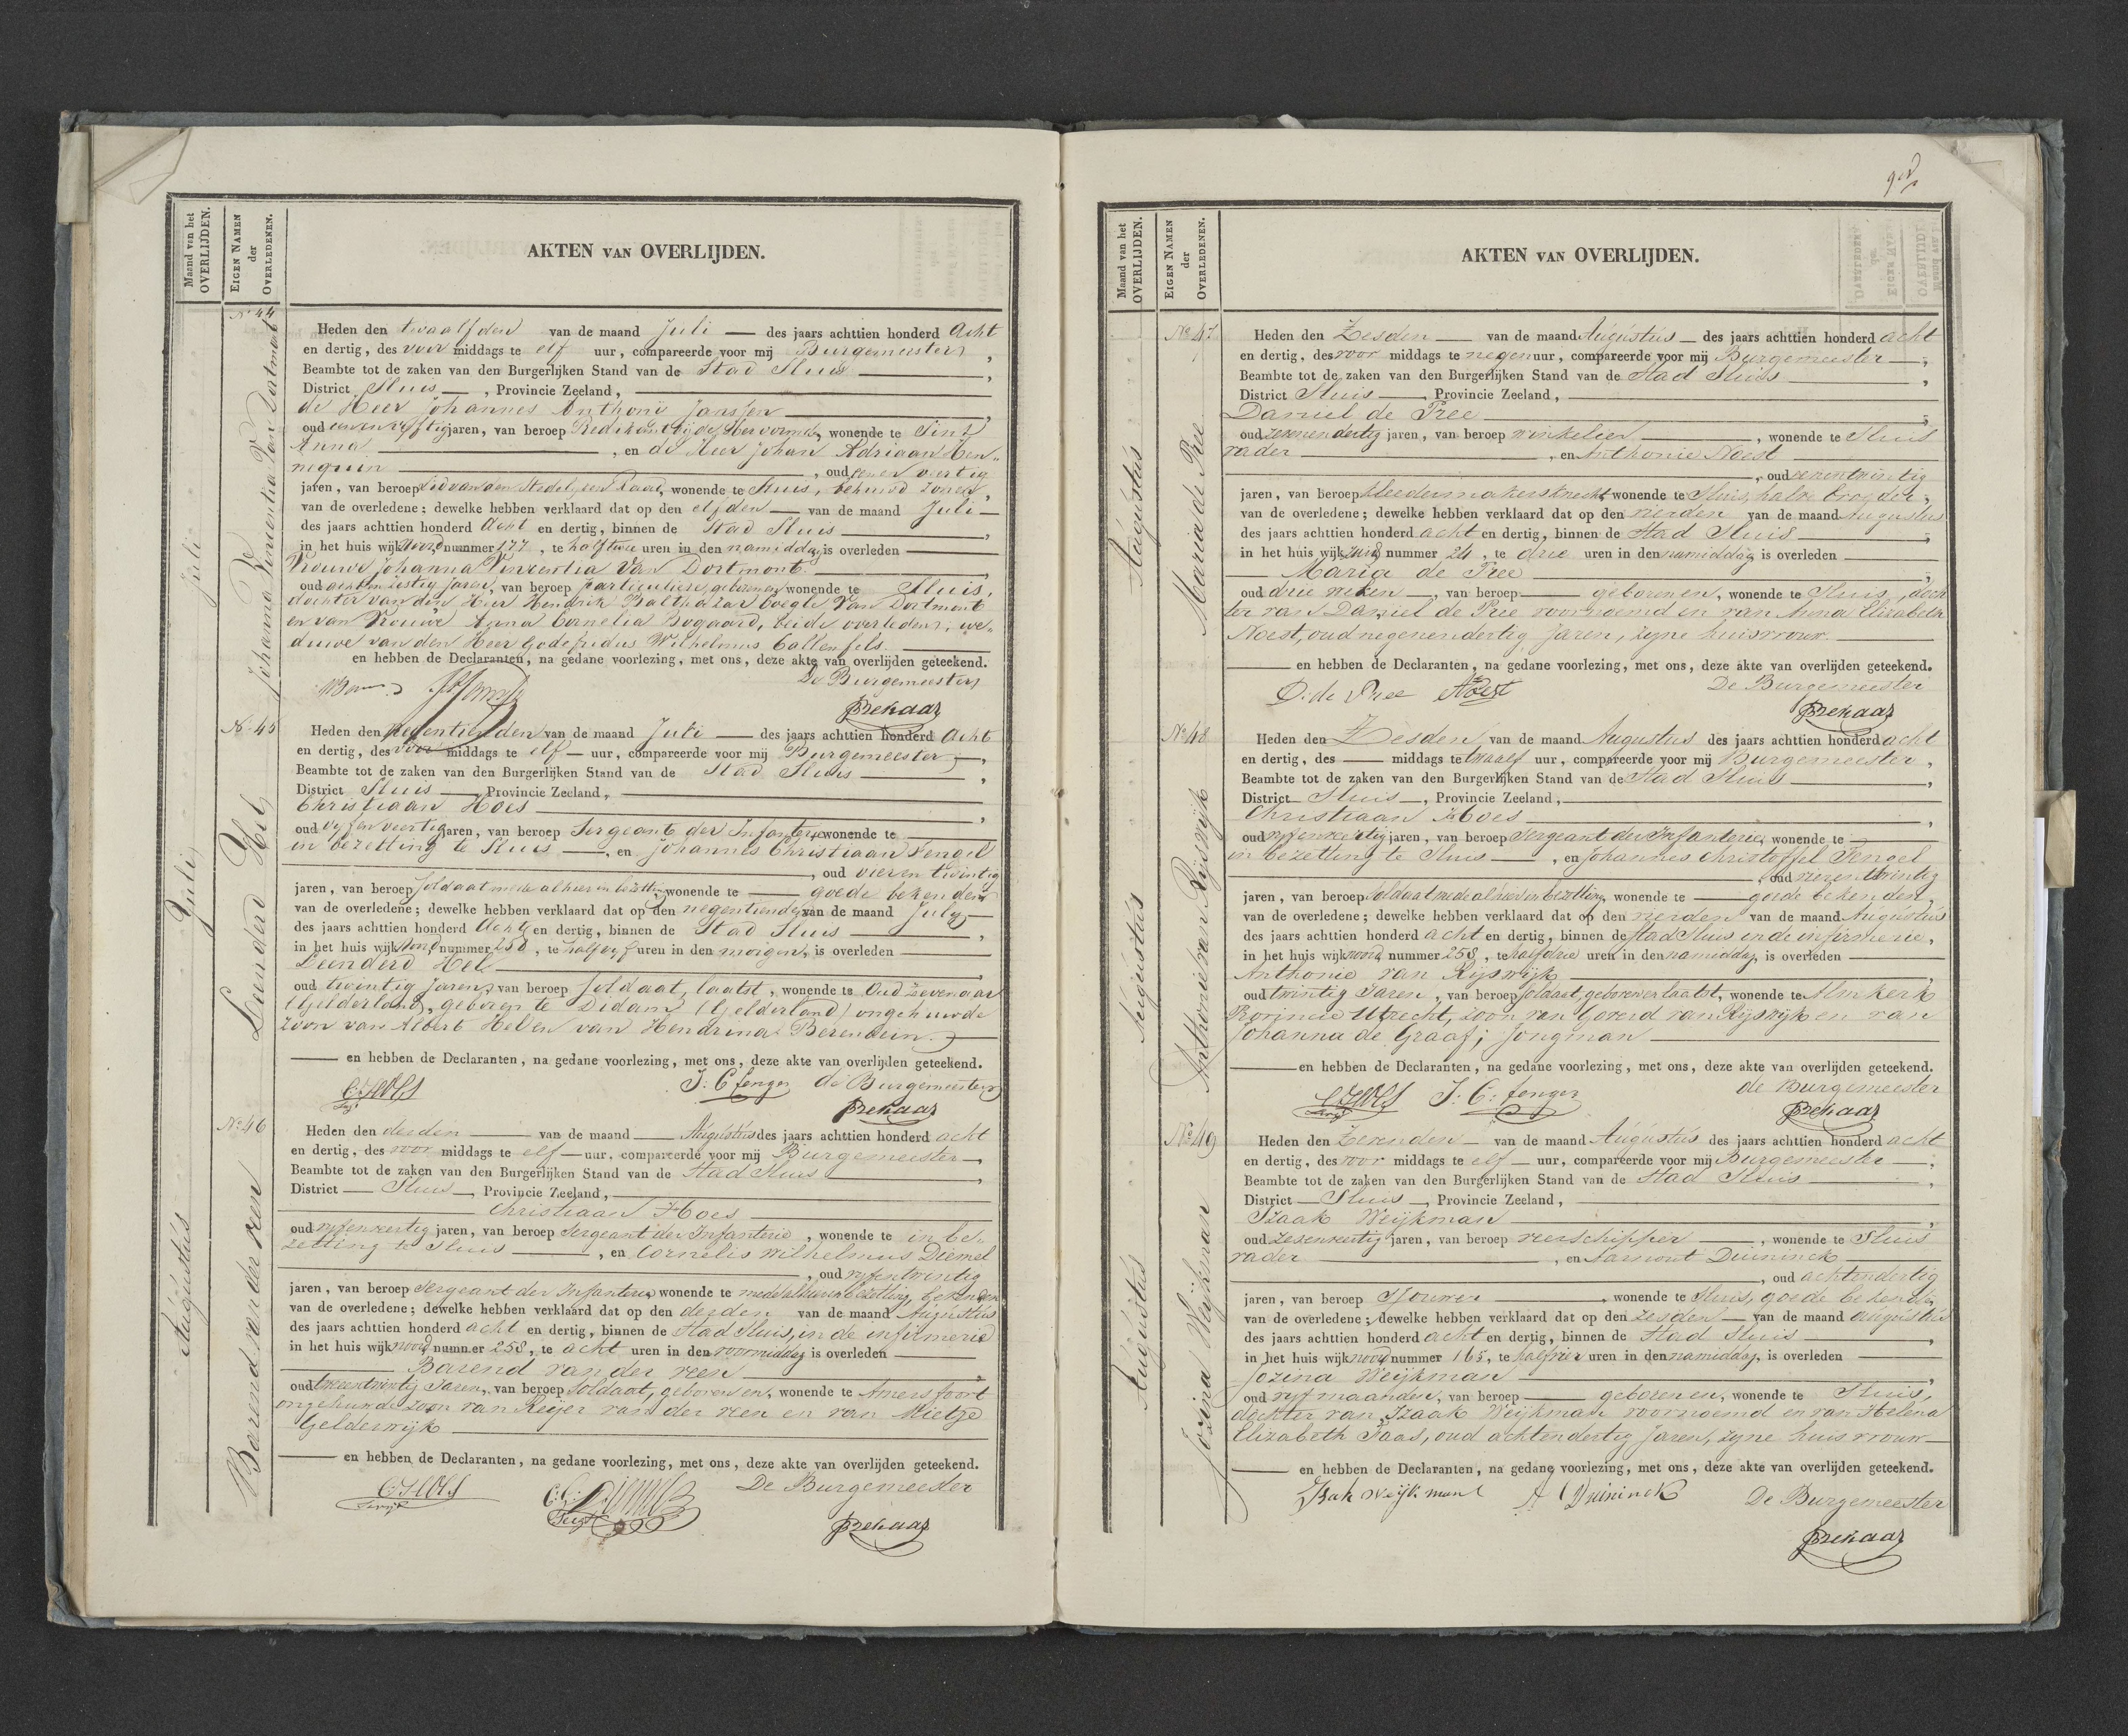 Maand van het
OVERLIJDEN.
EIGEN NAMEN
der
OVERLEDENEN.
AKTEN VAN OVERLIJDEN.
Juli
No 44
Heden den twaalfden van de maand Juli des jaars achttien honderd Acht
en dertig, des voor middags te elf uur, compareerde voor mij Burgemeester,
Beambte tot de zaken van den Burgerlijken Stand van de Stad Sluis,
District Sluis, Provincie Zeeland,
de Heer Johannes Anthonie Janssen,
oud jaren, van beroep Predikant bij de Hervormde, wonende te Sint
Anna, en de Heer Johan Adriaan Hen„
nequin, oud en veertig
jaren, van beroep Lid van den Stedelijken Raad, wonende te Sluis, behuwd zonen,
van de overledene; dewelke hebben verklaard dat op den elfden van de maand Juli
des jaars achttien honderd Acht en dertig, binnen de Stad Sluis,
in het huis wijk Noord nummer 177, te half twee uren in den namiddag, is overleden
Vrouwe Johanna Vincentia Van Dortmont,
oud acht en zestig Jaren, van beroep particuliere, geboren en wonende te Sluis,
dochter van den Heer Hendrik Balthazar Coegle Van Dortmont
en van Vrouwe Anna Cornelia Bogaard, beide overleden; we„
duwe van den Heer Godefridus Wilhelmus Callenfels.
en hebben de Declaranten, na gedane voorlezing, met ons, deze akte van overlijden geteekend.
De Burgemeester
Juli
Leenderd Hel
No 45
Heden den Negentienden van de maand Juli des jaars achttien honderd Acht
en dertig, des voor middags te elf uur, compareerde voor mij Burgemeester,
Beambte tot de zaken van den Burgerlijken Stand van de Stad Sluis,
District Sluis, Provincie Zeeland,
Christiaan Hoes,
oud vyf en veertig jaren, van beroep Sergeant der Infanterie, wonende te
in bezetting te Sluis, en Johannes Christiaan Fengel
, oud vier en twintig
jaren, van beroep soldaat mede alhier in bezetting, wonende te goede bekenden
van de overledene; dewelke hebben verklaard dat op den negentienden van de maand July
des jaars achttien honderd Acht en dertig, binnen de Stad Sluis,
in het huis wijk Noord nummer 258, te half uren in den morgen, is overleden
Leenderd Hel,
oud twintig Jaren, van beroep Soldaat, laatst, wonende te Oud Zevenaar
(Gelderland), geboren te Didam (Gelderland) ongehuwde
zoon van Albert Hel en van Hendrina Berendsen.
en hebben de Declaranten, na gedane voorlezing, met ons, deze akte van overlijden geteekend.
C: Hoes J: C fenger de Burgemeester
Augustus
Barend van der veen
No 46
Heden den derden van de maand Augustus des jaars achttien honderd acht
en dertig, des voor middags te elf uur, compareerde voor mij Burgemeester,
Beambte tot de zaken van den Burgerlijken Stand van de Stad Sluis,
District Sluis, Provincie Zeeland,
Christiaan Hoes
oud vyfenveertig jaren, van beroep Sergeant der Infanterie, wonende te in be„
zetting te Sluis, en Cornelis Wilhelmus Diemel
, oud vyfentwintig
jaren, van beroep Sergeant der Infanterie, wonende te mede alhier in bezetting, bekenden
van de overledene; dewelke hebben verklaard dat op den derden van de maand Augustus
des jaars achttien honderd acht en dertig, binnen de Stad Sluis, in de infirmerie
in het huis wijk noord nummer 258, te acht uren in den voormiddag is overleden
Barend van der veen,
oud tweeentwintig Jaren, van beroep Soldaat, geboren en, wonende te Amersfoort
ongehuwde zoon van Reijer van der veen en van Mietze
Gelderwijk
en hebben de Declaranten, na gedane voorlezing, met ons, deze akte van overlijden geteekend.
C: Hoes De Burgemeester
Maand van het
OVERLIJDEN.
EIGEN NAMEN
der
OVERLEDENEN.
AKTEN VAN OVERLIJDEN.
Augustus
Maria de Pree
No 47
Heden den Zesden van de maand Augustus des jaars achttien honderd acht
en dertig, des voor middags te negen uur, compareerde voor mij Burgemeester,
Beambte tot de zaken van den Burgerlijken Stand van de Stad Sluis,
District Sluis, Provincie Zeeland,
Daniel de Pree,
oud zevenendertig jaren, van beroep winkelier, wonende te Sluis
vader, en Anthonie Noest
, oud eenentwintig
jaren, van beroep kleedermakersknecht, wonende te Sluis, halve broeder,
van de overledene; dewelke hebben verklaard dat op den vierden van de maand Augustus
des jaars achttien honderd acht en dertig, binnen de Stad Sluis,
in het huis wijk zuid nummer 24, te drie uren in den namiddag is overleden
Maria de Pree,
oud drie weken, van beroep geboren en, wonende te Sluis, doch
ter van Daniel de Pree voornoemd en van Anna Elizabeth
Noest, oud negenendertig Jaren, zyne huisvrouw.
en hebben de Declaranten, na gedane voorlezing, met ons, deze akte van overlijden geteekend.
D: de Pree A Noest De Burgemeester
Augustus
Anthonie van Rijswijk
No 48
Heden den Zesden van de maand Augustus des jaars achttien honderd acht
en dertig, des middags te twaalf uur, compareerde voor mij Burgemeester,
Beambte tot de zaken van den Burgerlijken Stand van de Stad Sluis,
District Sluis, Provincie Zeeland,
Christiaan Hoes,
oud vyfenveertig jaren, van beroep Sergeant der Infanterie, wonende te
in bezetting te Sluis, en Johannes Christoffel Fengel
, oud vierentwintig
jaren, van beroep soldaat mede alhier in bezetting, wonende te goede bekenden,
van de overledene; dewelke hebben verklaard dat op den vierden van de maand Augustus
des jaars achttien honderd acht en dertig, binnen de Stad Sluis in de infirmerie,
in het huis wijk noord nummer 258, te half drie uren in den namiddag is overleden
Anthonie van Rijswijk,
oud twintig Jaren, van beroep soldaat, geboren en laatst, wonende te Almkerk
Provincie Utrecht, zoon van Goverd van Rijswijk en van
Johanna de Graaf; Jongman
en hebben de Declaranten, na gedane voorlezing, met ons, deze akte van overlijden geteekend.
C: Hoes J: C: fenger de Burgemeester
Augustus
Jozina Weijkman
No 49
Heden den Zevenden van de maand Augustus des jaars achttien honderd acht
en dertig, des voor middags te elf uur, compareerde voor mij Burgemeester,
Beambte tot de zaken van den Burgerlijken Stand van de Stad Sluis,
District Sluis, Provincie Zeeland,
Izaak Weijkman,
oud zesenveertig jaren, van beroep veerschipper, wonende te Sluis
vader, en Duininck
, oud achtendertig
jaren, van beroep, wonende te Sluis, goede bekende,
van de overledene; dewelke hebben verklaard dat op den zesden van de maand augustus
des jaars achttien honderd acht en dertig, binnen de Stad Sluis,
in het huis wijk noord nummer 165, te half vier uren in den namiddag, is overleden
Jozina Weijkman,
oud vyf maanden, van beroep geboren en, wonende te Sluis,
dochter van Izaak Weijkman voornoemd en van Helena
Elizabeth Faas, oud achtendertig Jaren, zyne huisvrouw
en hebben de Declaranten, na gedane voorlezing, met ons, deze akte van overlijden geteekend.
Izak weijkman A Duininck De Burgemeester